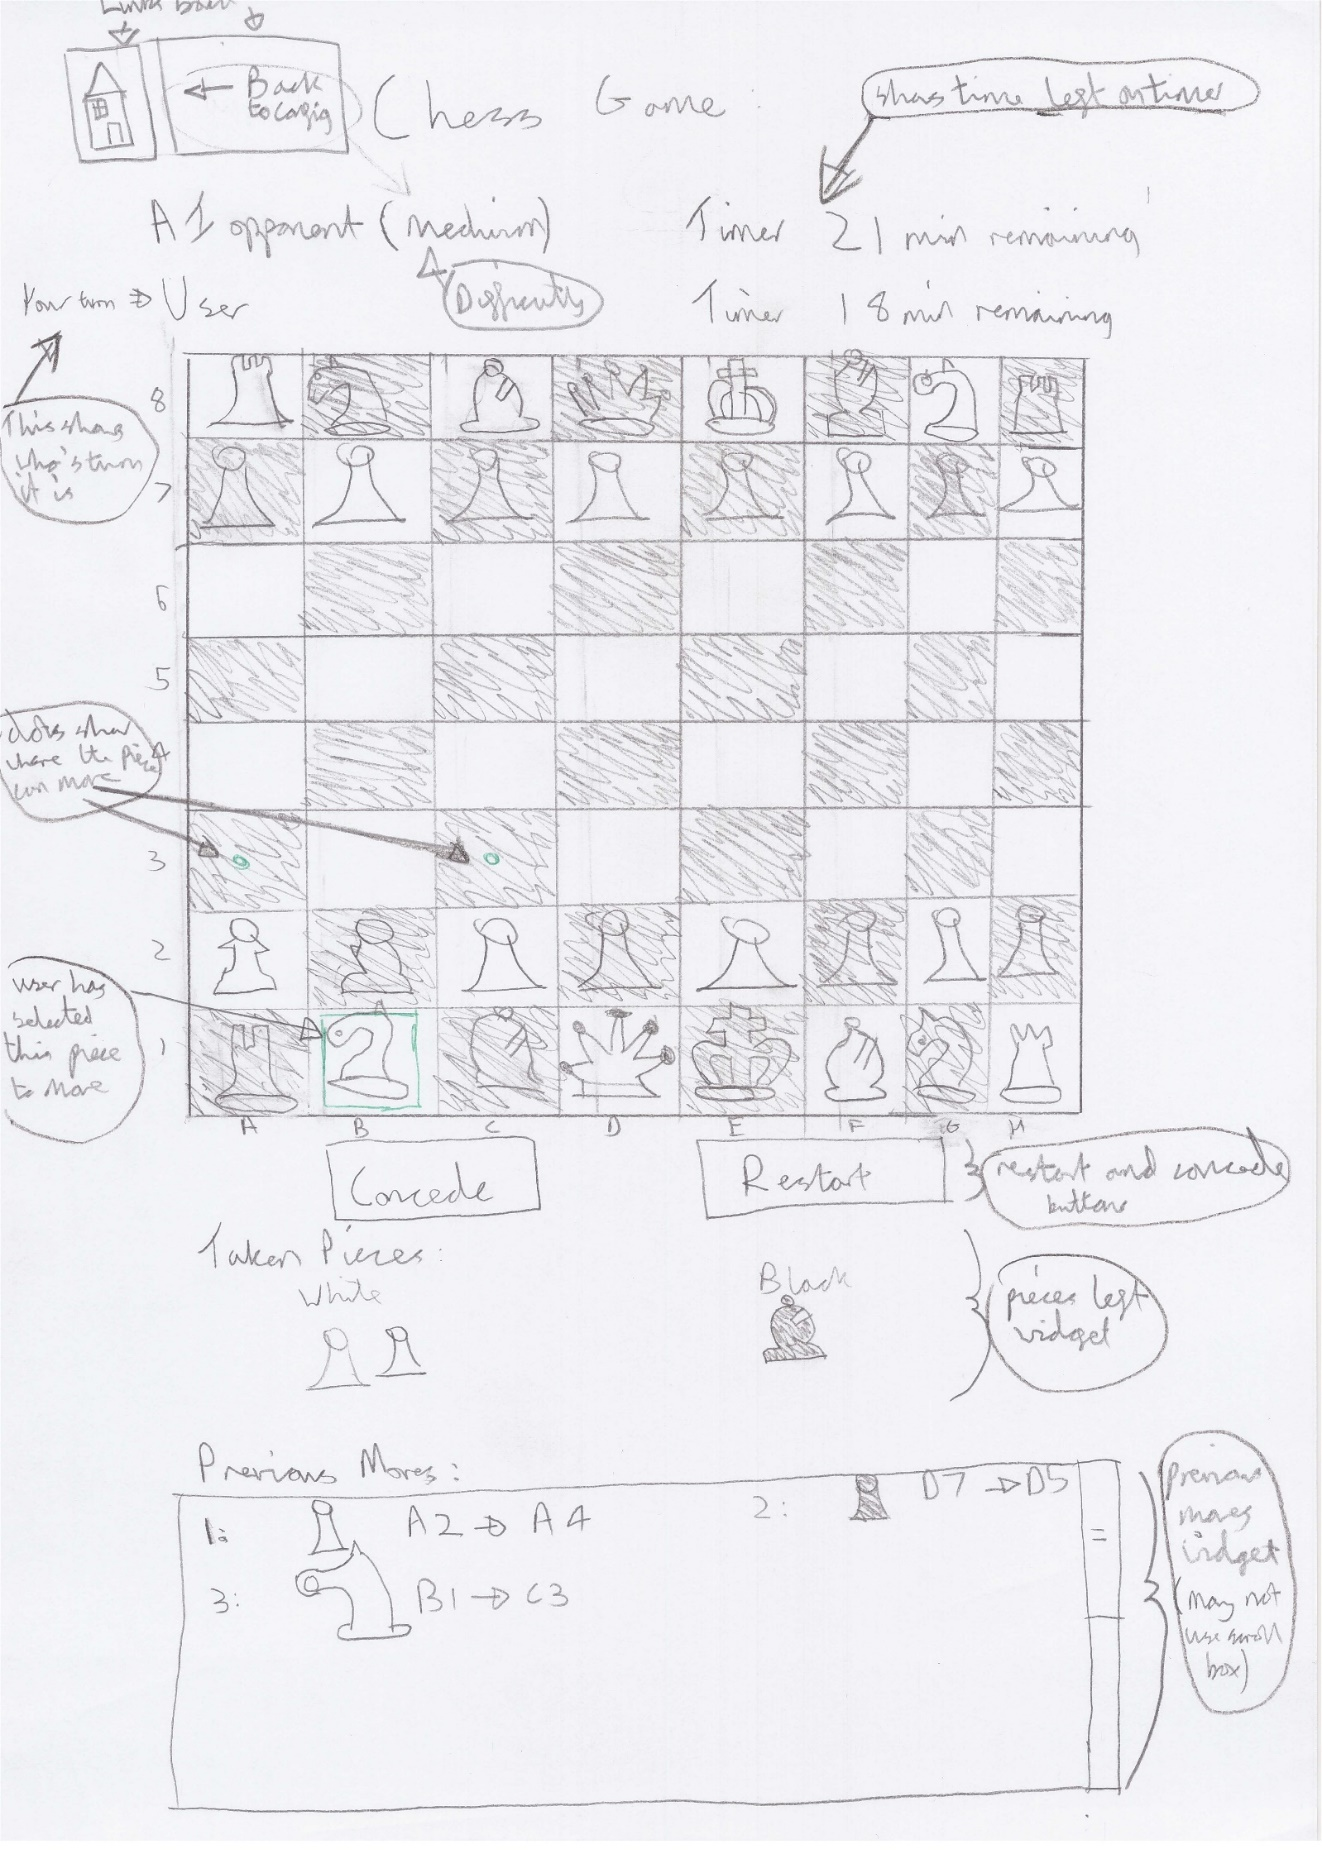 Links back
← Back
to config
Chess Game:
shows time left on timer
AI opponent (medium)
Timer 21 min remaining
Difficulty
Your turn ⇒ User
Timer 18 min remaining
This shows
who's turn
it is
8
7
6
5
4
3
2
1
dots show
where the piece
can move
user has
selected
this piece
to move
A B C D E F G H
Concede
Restart
restart and concede
buttons
Taken Pieces:
White
Black
pieces left
widget
Previous Moves:
1: A2 → A4
2: D7 → D5
3: B1 → C3
=
previous
moves
widget
(may not
use scroll
box)